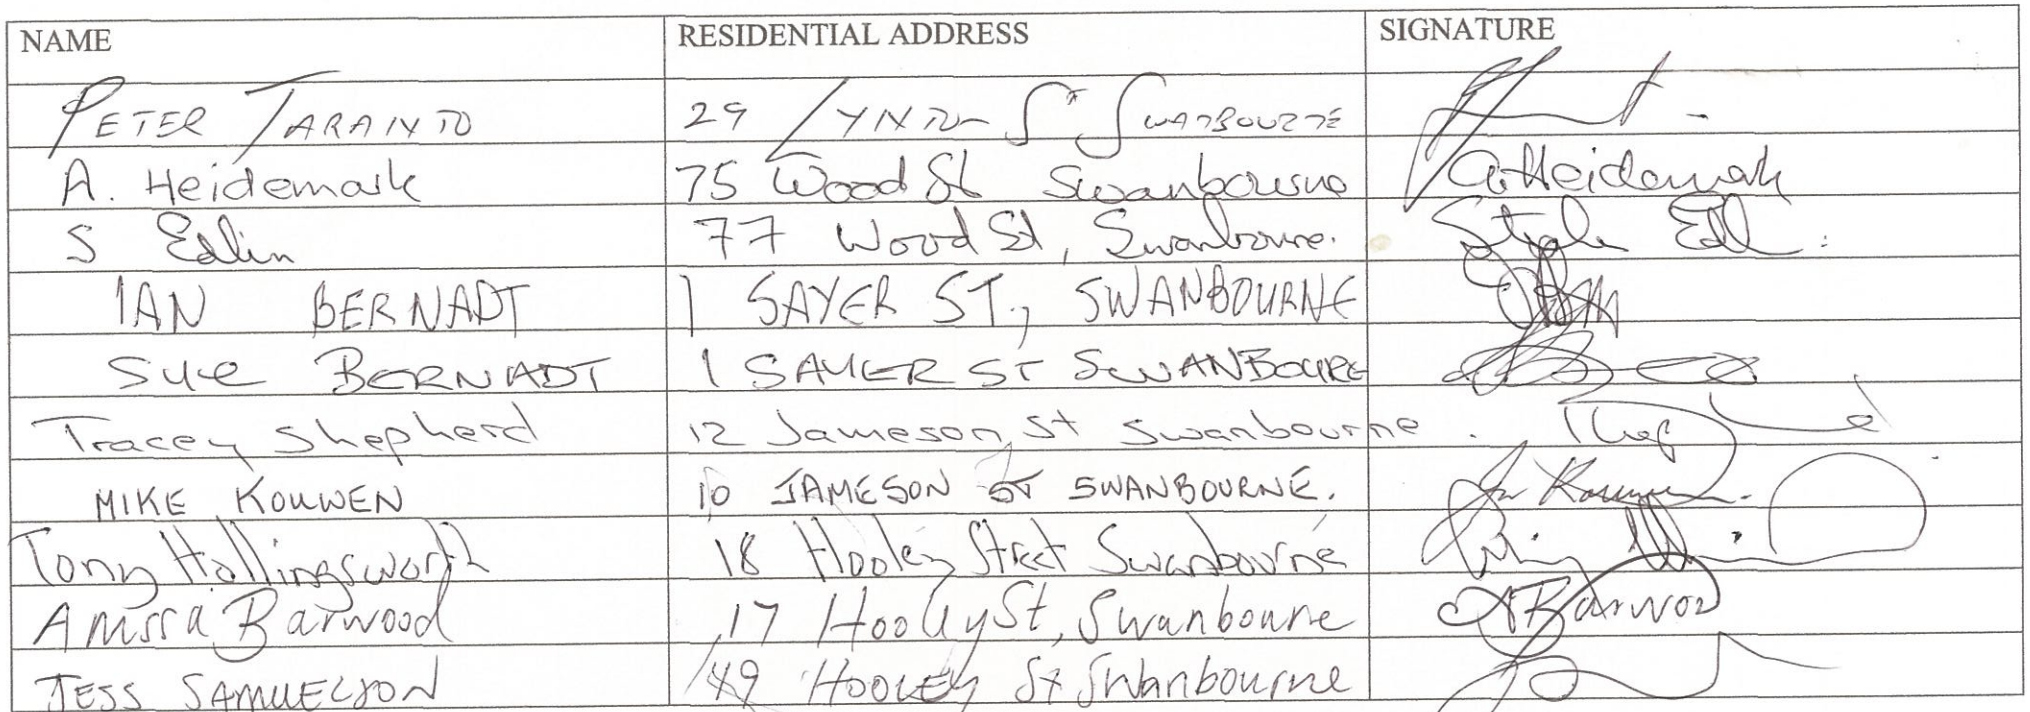 NAME RESIDENTIAL ADDRESS SIGNATURE
PETER TARANTO 29 LYNTON ST SWANBOURNE
A. Heidemark 75 Wood St Swanbourne A Heidemark
S Edlin 77 Wood St, Swanbourne.
IAN BERNADT 1 SAYER ST., SWANBOURNE
Sue BERNADT 1 SAYER ST SWANBOURE
Tracey Shepherd 12 Jameson St Swanbourne.
MIKE KOUWEN 10 JAMESON ST SWANBOURNE.
Tony Hollingsworth 18 Hooley Street Swanbourne
Barwood 17 Hooley St, Swanbourne
JESS SAMUELSON 49 HOOLEY St Swanbourne